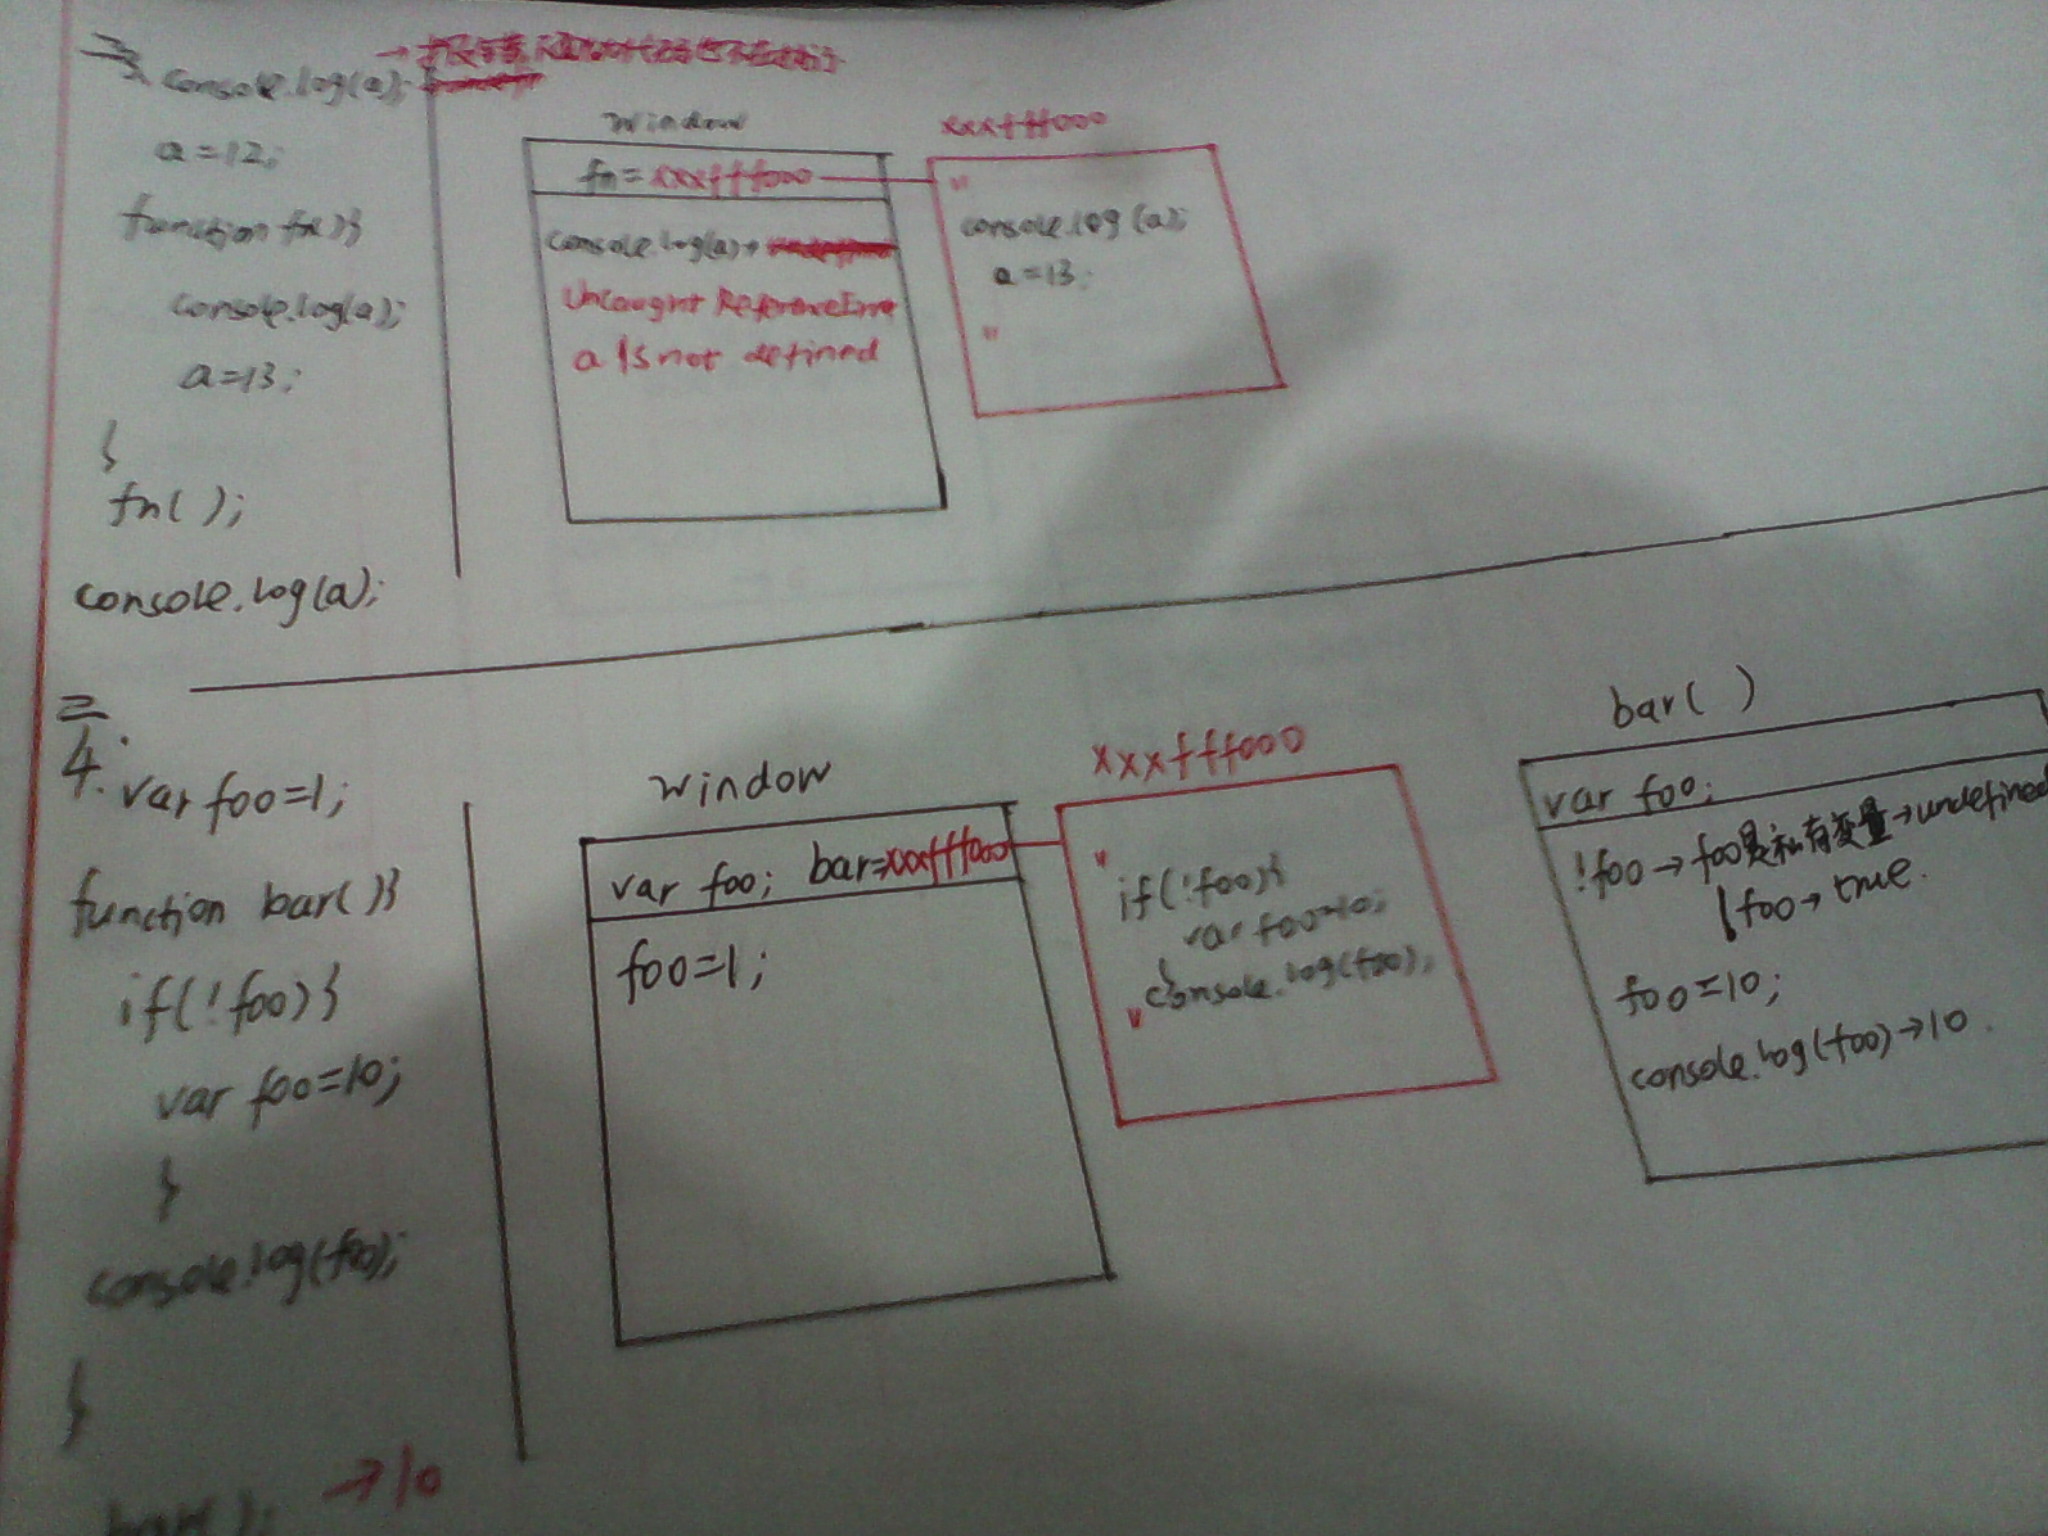 console.log(a);
a=12;
function fn(){
console.log(a);
a=13;
}
fn( );
console.log(a);
window
fn=xxxfff000
console.log(a)→
Uncaught ReferenceError
a is not defined
xxxfff000
"
console.log(a);
a=13;
"
二
4.
var foo=1;
function bar(){
if(!foo){
var foo=10;
}
console.log(foo);
}
bar(); →10
window
var foo; bar=xxxfff000
foo=1;
xxxfff000
"
if(!foo){
var foo=10;
}
console.log(foo);
"
bar( )
var foo;
!foo→foo是私有变量→undefined
!foo→true.
foo=10;
console.log(foo)→10.